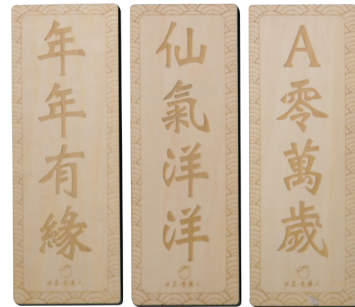 年年有緣
仙氣洋洋
A零萬歲